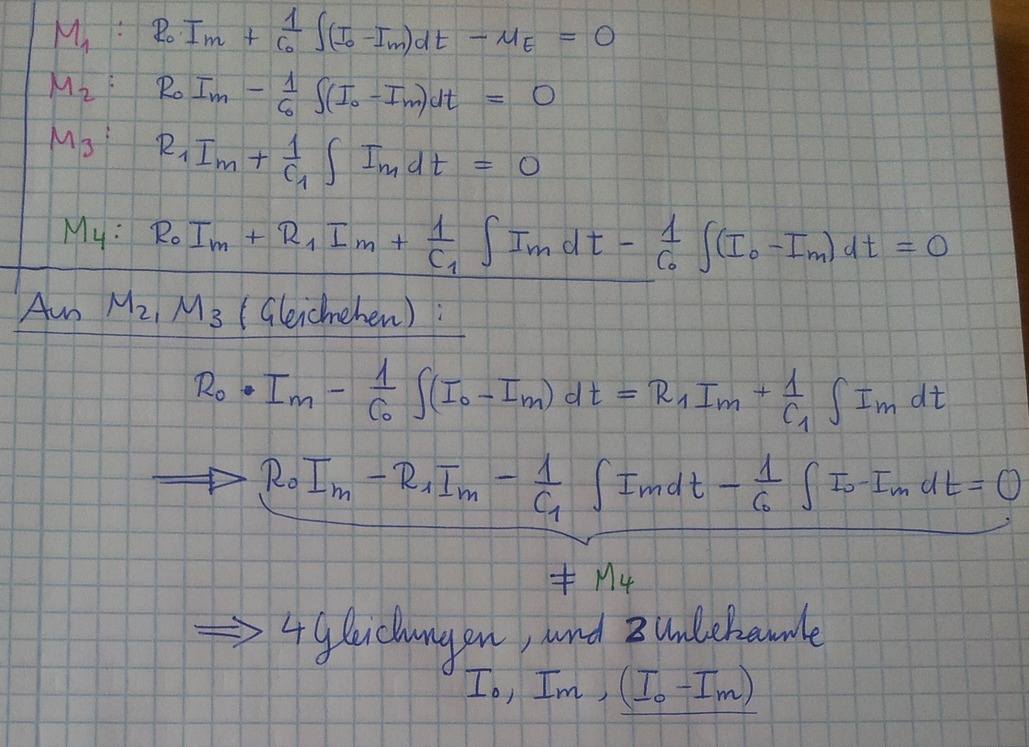 M₁: R₀ Iₘ + 1/C₀ ∫(I₀ - Iₘ)dt - U_E = 0
M₂: R₀ Iₘ - 1/C₀ ∫(I₀ - Iₘ)dt = 0
M₃: R₁ Iₘ + 1/C₁ ∫ Iₘ dt = 0
M₄: R₀ Iₘ + R₁ Iₘ + 1/C₁ ∫ Iₘ dt - 1/C₀ ∫(I₀ - Iₘ) dt = 0
Aus M₂, M₃ (Gleichsehen):
R₀ • Iₘ - 1/C₀ ∫(I₀ - Iₘ) dt = R₁ Iₘ + 1/C₁ ∫ Iₘ dt
⟹ R₀ Iₘ - R₁ Iₘ - 1/C₁ ∫ Iₘ dt - 1/C₀ ∫ I₀ - Iₘ dt = 0
≠ M₄
⟹ 4 Gleichungen, und 3 Unbekannte
I₀, Iₘ, (I₀ - Iₘ)